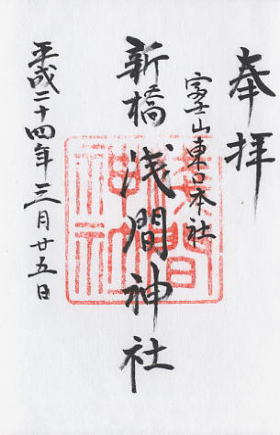 奉拝
富士山東口本社
新橋浅間神社
平成二十四年三月廿五日